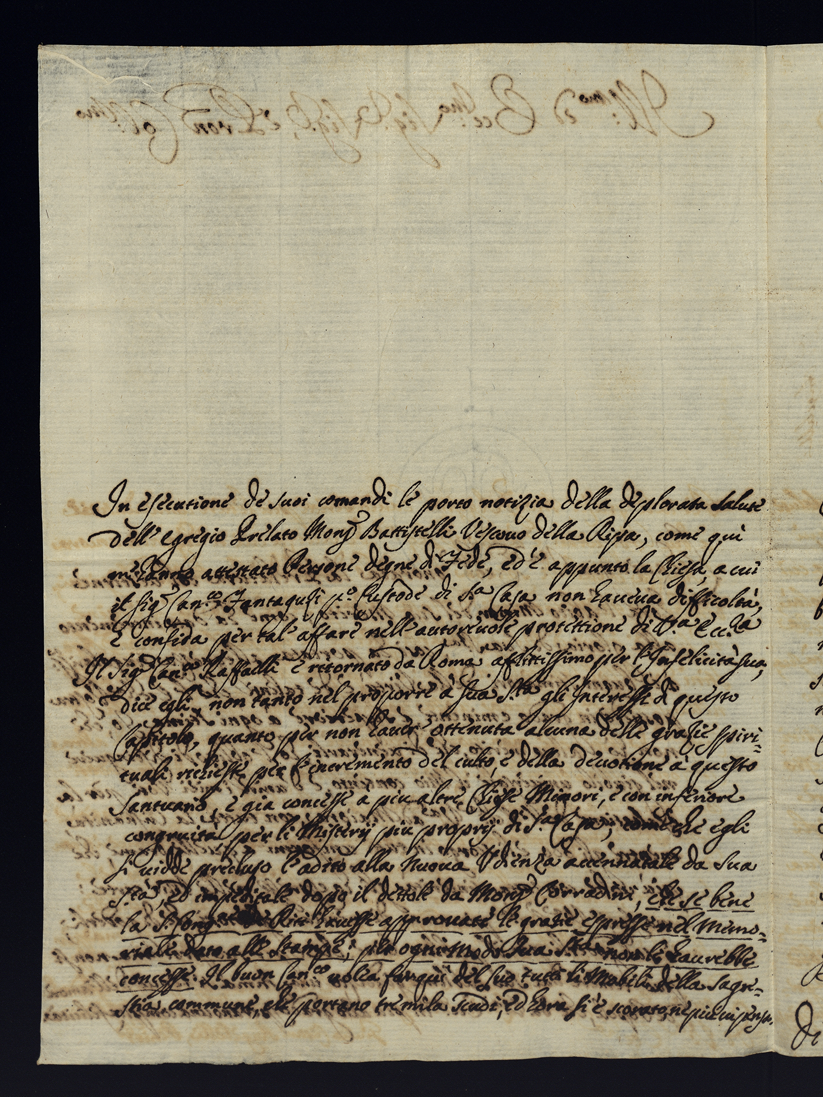 In esecutione de suoi comandi le porto notizia della deplorata salute
dell'egregio Prelato Monsr Battistelli Vescouo della Ripa, come qui
m'hanno attestato Persone degne di Fede, ed è appunto la Chiesa, a cui
il Sigr Canco Fantagusi po Custode di Sta Casa non haueua difficoltà,
e confida per tal' affare nell'autoreuole protettione di V.ra Ecc.za
Il Sigr Canco Raffaelli è ritornato da Roma afflittissimo per l'Infelicità sua,
dice egli, non tanto nel proporre a Sua Sta gli Interessi di questo
Capitolo, quanto per non hauer ottenuta alcuna delle grazie spiri=
tuali richieste per l'incremento del culto, e della deuotione a questo
Santuario, e già concesse a più altre Chiese Minori, e con inferiore
congruità per li Misterij più proprij di Sta Casa, come che egli
si uidde precluso l'adito alla nuoua Udienza accennatale da Sua
Stà, ed impeditale dopo il dettole da Monsr Corradini, che se bene
la S. Congne de Riti hauesse approuate le grazie espresse nel Memo=
riale dato alle Stampe, per ogni modo Sua Sta non le haurebbe
concesse. Il buon Canco uolea far qui del suo tutti li Mobili della Sagre=
stia commune, che portano tre mila Scudi, ed hora si è scorato, ne più ui pensa.
Di